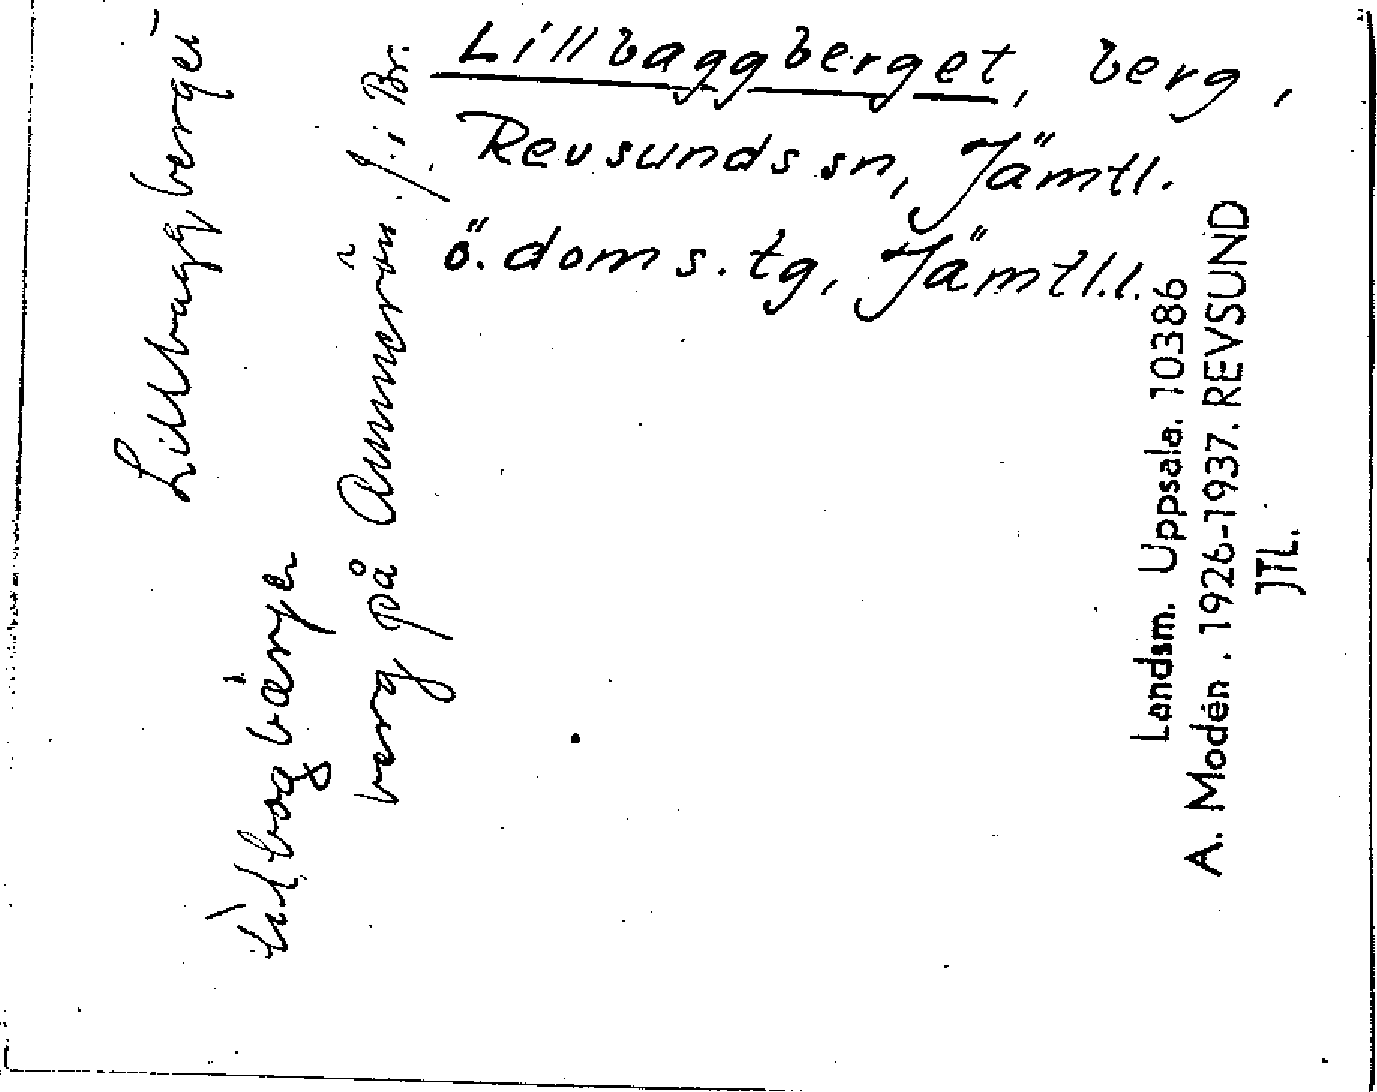 Lillbaggberget, berg,
Revsunds sn, Jämtl.
ö. doms. tg, Jämtl.l.
Lillbaggberget
berg på Ammerön f. i Br.
Landsm. Uppsala. 10386
A. Modén . 1926-1937. REVSUND
JTL.